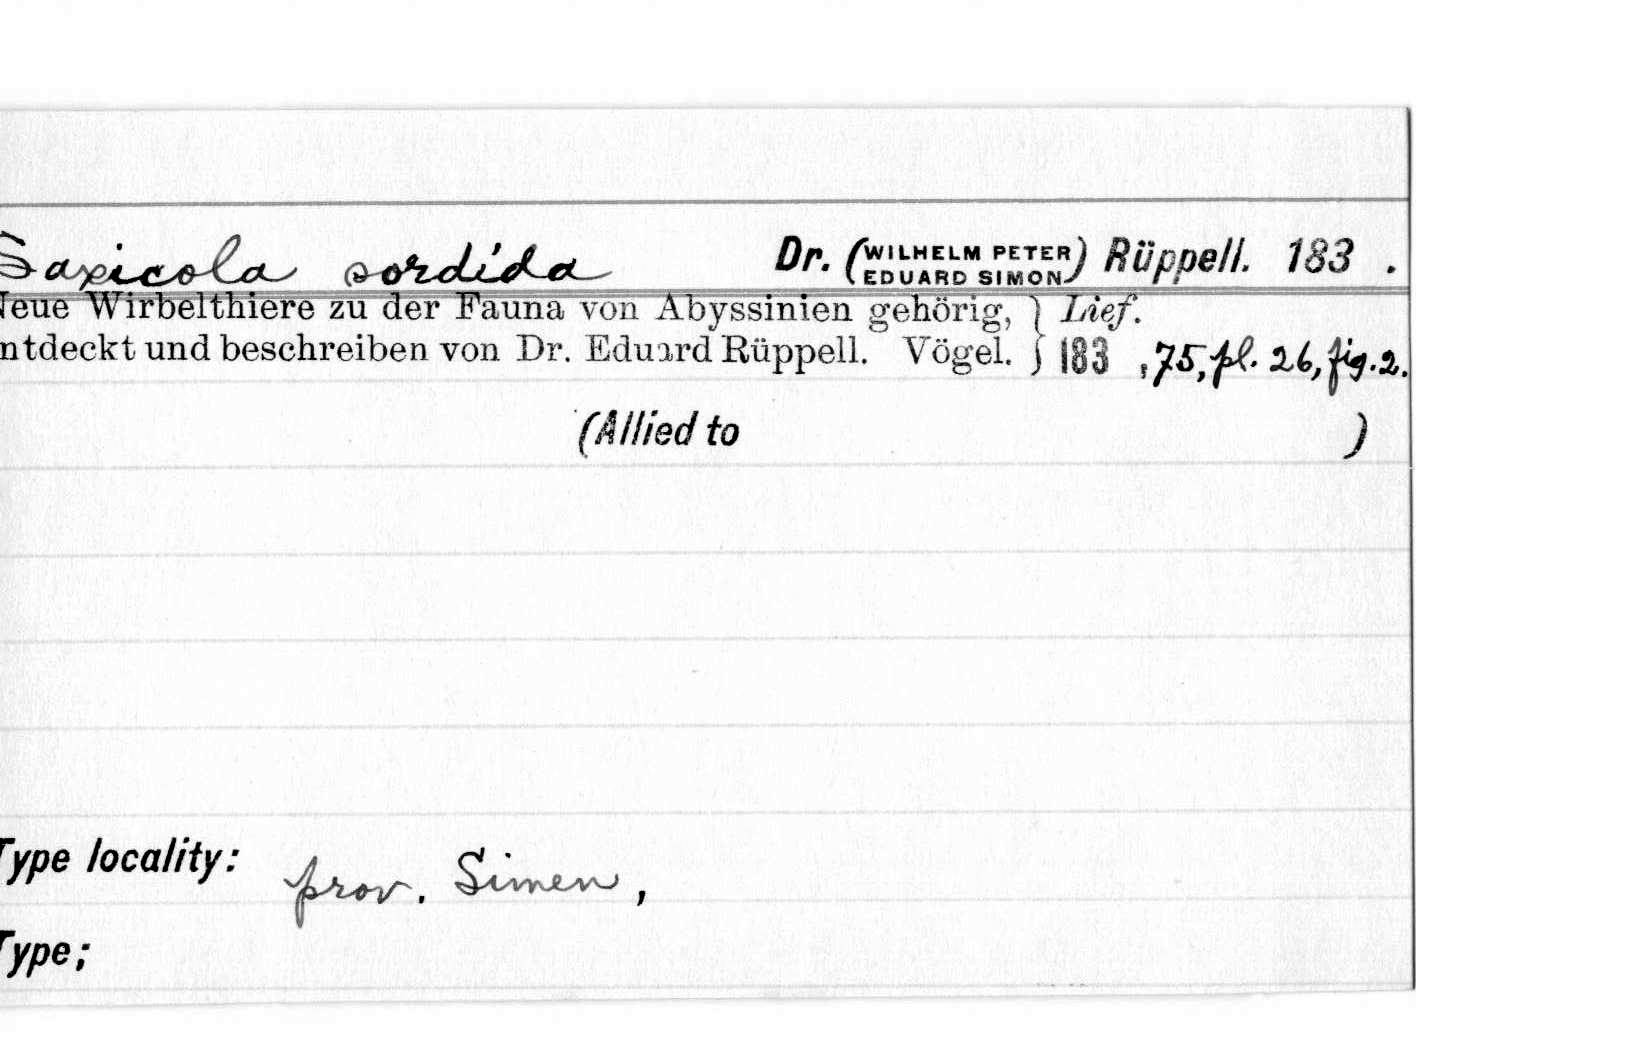 Saxicola sordida Dr. (WILHELM PETER EDUARD SIMON) Rüppell. 183 .
Neue Wirbelthiere zu der Fauna von Abyssinien gehörig, } Lief.
ntdeckt und beschreiben von Dr. Eduard Rüppell. Vögel. } 183 , 75, pl. 26, fig. 2.
(Allied to )
Type locality: prov. Simen,
Type;